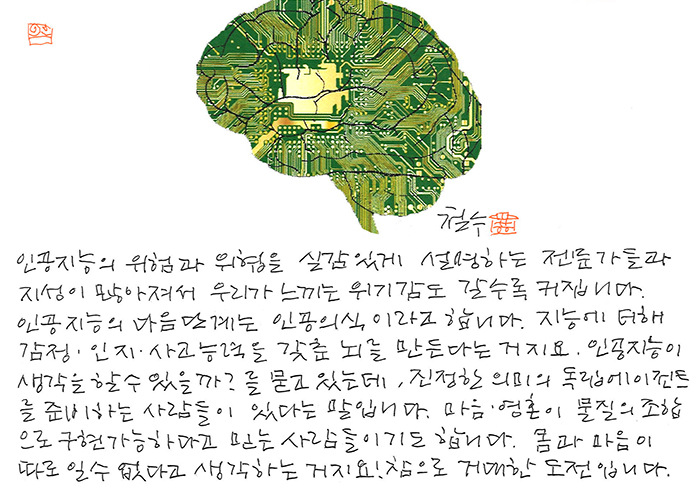 철수
인공지능의 위험과 위협을 실감있게 설명하는 전문가들과
지성이 많아져서 우리가 느끼는 위기감도 갈수록 커집니다.
인공지능의 다음단계는 인공의식이라고 합니다. 지능에 더해
감정·인지·사고능력을 갖춘 뇌를 만든다는 거지요. 인공지능이
생각을할수있을까?를 묻고 있는데, 진정한 의미의 독립에이전트
를 준비하는 사람들이 있다는 말입니다. 마음·영혼이 물질의 조합
으로 구현가능하다고 믿는 사람들이기도 합니다. 몸과 마음이
따로일수 없다고 생각하는 거지요! 참으로 거대한 도전입니다.